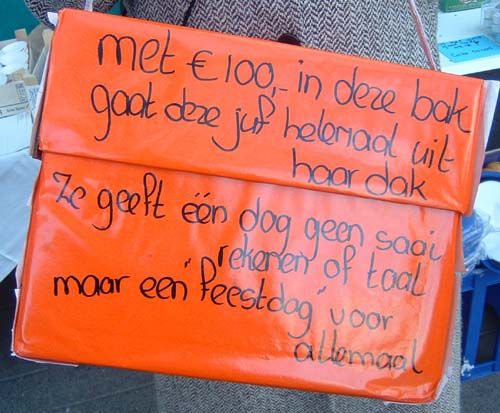 met €100,- in deze bak
gaat deze juf helemaal uit
haar dak
Ze geeft één dag geen saai
rekenen of taal
maar een "feestdag" voor
allemaal